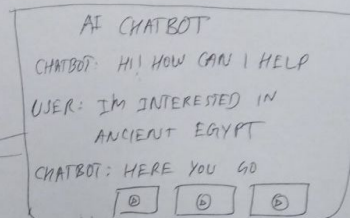 AI CHATBOT
CHATBOT: HI! HOW CAN I HELP
USER: I'M INTERESTED IN
ANCIENT EGYPT
CHATBOT: HERE YOU GO